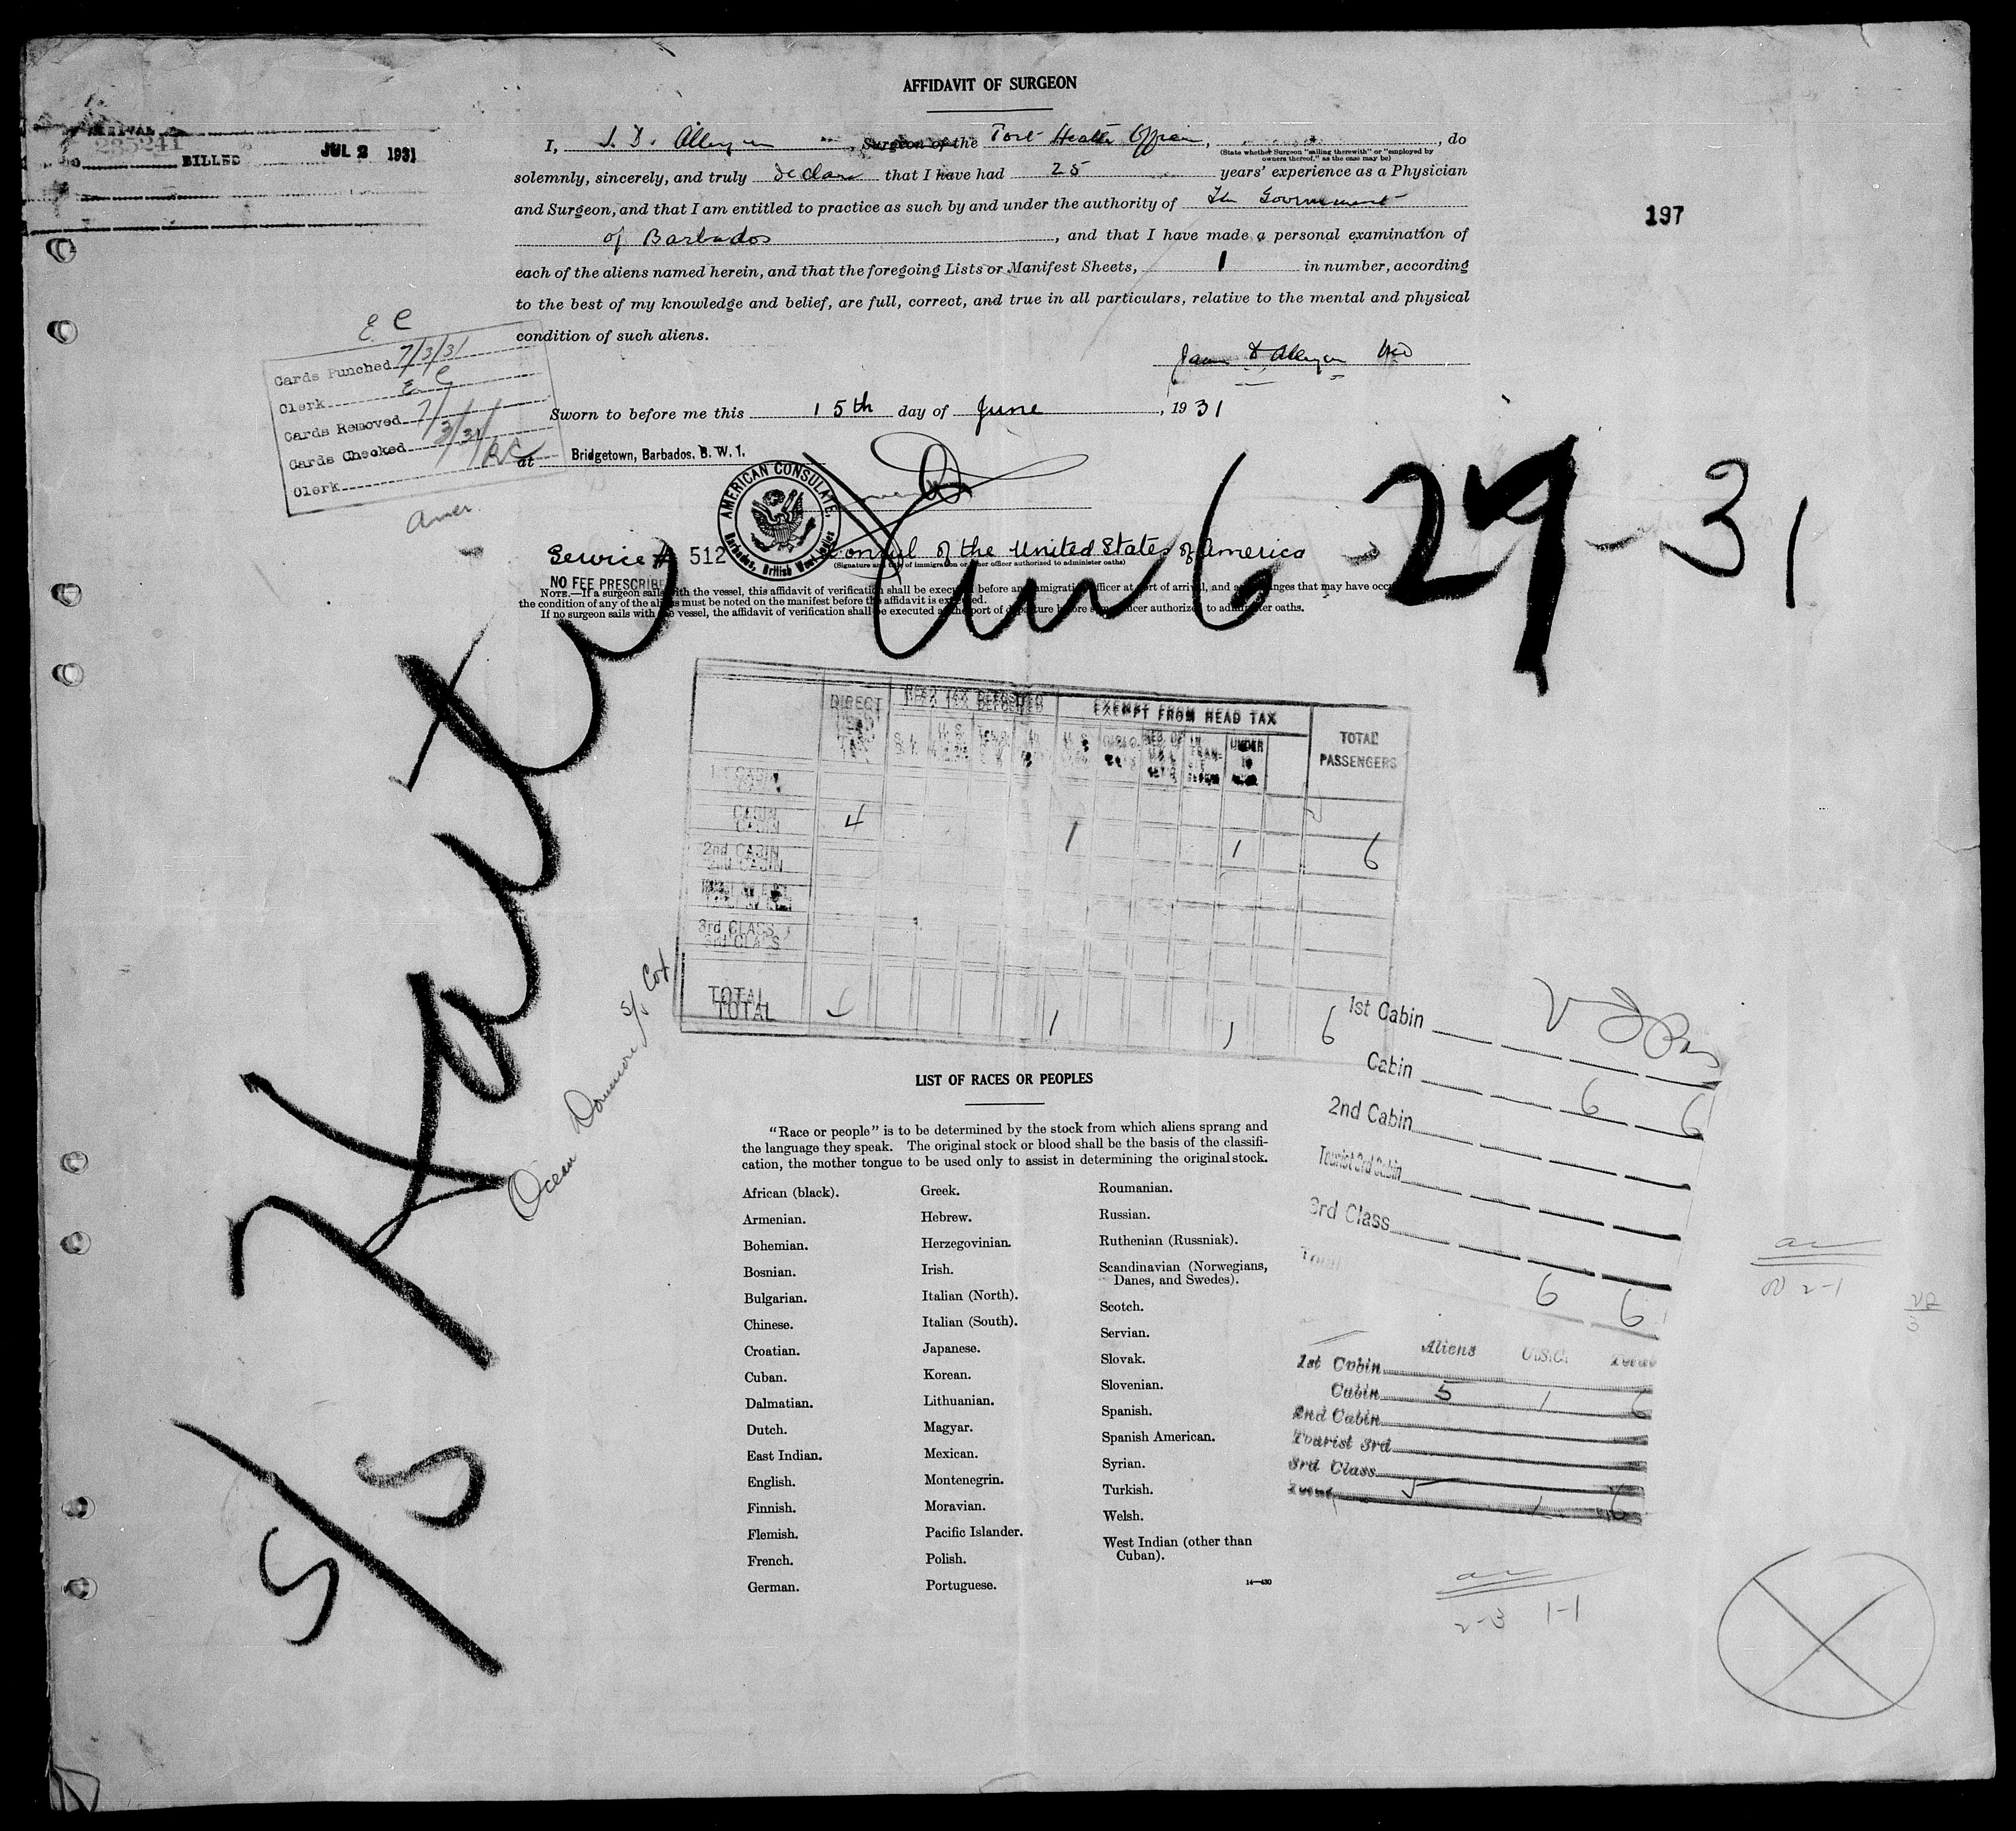 AFFIDAVIT OF SURGEON
ARRIVAL
235241
BILLED JUL 2 1931
I, J. D. Alleyne, Surgeon of the Port Health Officer, do
(State whether Surgeon "sailing therewith" or "employed by owners thereof," as the case may be)
solemnly, sincerely, and truly declare that I have had 25 years' experience as a Physician
and Surgeon, and that I am entitled to practice as such by and under the authority of The Government
of Barbados, and that I have made a personal examination of
197
each of the aliens named herein, and that the foregoing Lists or Manifest Sheets, 1 in number, according
to the best of my knowledge and belief, are full, correct, and true in all particulars, relative to the mental and physical
condition of such aliens.
James D Alleyne MD
E C
Cards Punched 7/3/31
Clerk E C
Cards Removed
Cards Checked 7/3/31
Clerk
Amer.
Sworn to before me this 15th day of June, 1931
at Bridgetown, Barbados. B. W. I.
AMERICAN CONSULATE,
Barbados, British West Indies
Service # 512
NO FEE PRESCRIBE
Consul of the United States of America
(Signature and title of immigration or other officer authorized to administer oaths)
NOTE.—If a surgeon sails with the vessel, this affidavit of verification shall be executed before an immigration officer at port of arrival, and any changes that may have occ
the condition of any of the aliens must be noted on the manifest before the affidavit is executed.
If no surgeon sails with the vessel, the affidavit of verification shall be executed at the port of departure before an officer authorized to administer oaths.
6-29-31
S/S
DIRECT HEAD TAX
HEAD TAX DEPOSITED
EXEMPT FROM HEAD TAX
TOTAL PASSENGERS
UNDER 16
1st CABIN
CABIN 4 1 1 6
2nd CABIN
3rd CLASS
TOTAL 1 1 6
Ocean Dominion S/S Cor
1st Cabin
Cabin 6 6
2nd Cabin
Tourist 3rd Cabin
3rd Class
Total 6 6
LIST OF RACES OR PEOPLES
"Race or people" is to be determined by the stock from which aliens sprang and
the language they speak. The original stock or blood shall be the basis of the classifi-
cation, the mother tongue to be used only to assist in determining the original stock.
African (black).
Armenian.
Bohemian.
Bosnian.
Bulgarian.
Chinese.
Croatian.
Cuban.
Dalmatian.
Dutch.
East Indian.
English.
Finnish.
Flemish.
French.
German.
Greek.
Hebrew.
Herzegovinian.
Irish.
Italian (North).
Italian (South).
Japanese.
Korean.
Lithuanian.
Magyar.
Mexican.
Montenegrin.
Moravian.
Pacific Islander.
Polish.
Portuguese.
Roumanian.
Russian.
Ruthenian (Russniak).
Scandinavian (Norwegians,
Danes, and Swedes).
Scotch.
Servian.
Slovak.
Slovenian.
Spanish.
Spanish American.
Syrian.
Turkish.
Welsh.
West Indian (other than
Cuban).
14—430
Aliens U.S.C. Total
1st Cabin
Cabin 5 1 6
2nd Cabin
Tourist 3rd
3rd Class
Total 5 1 6
2-1
2-3 1-1